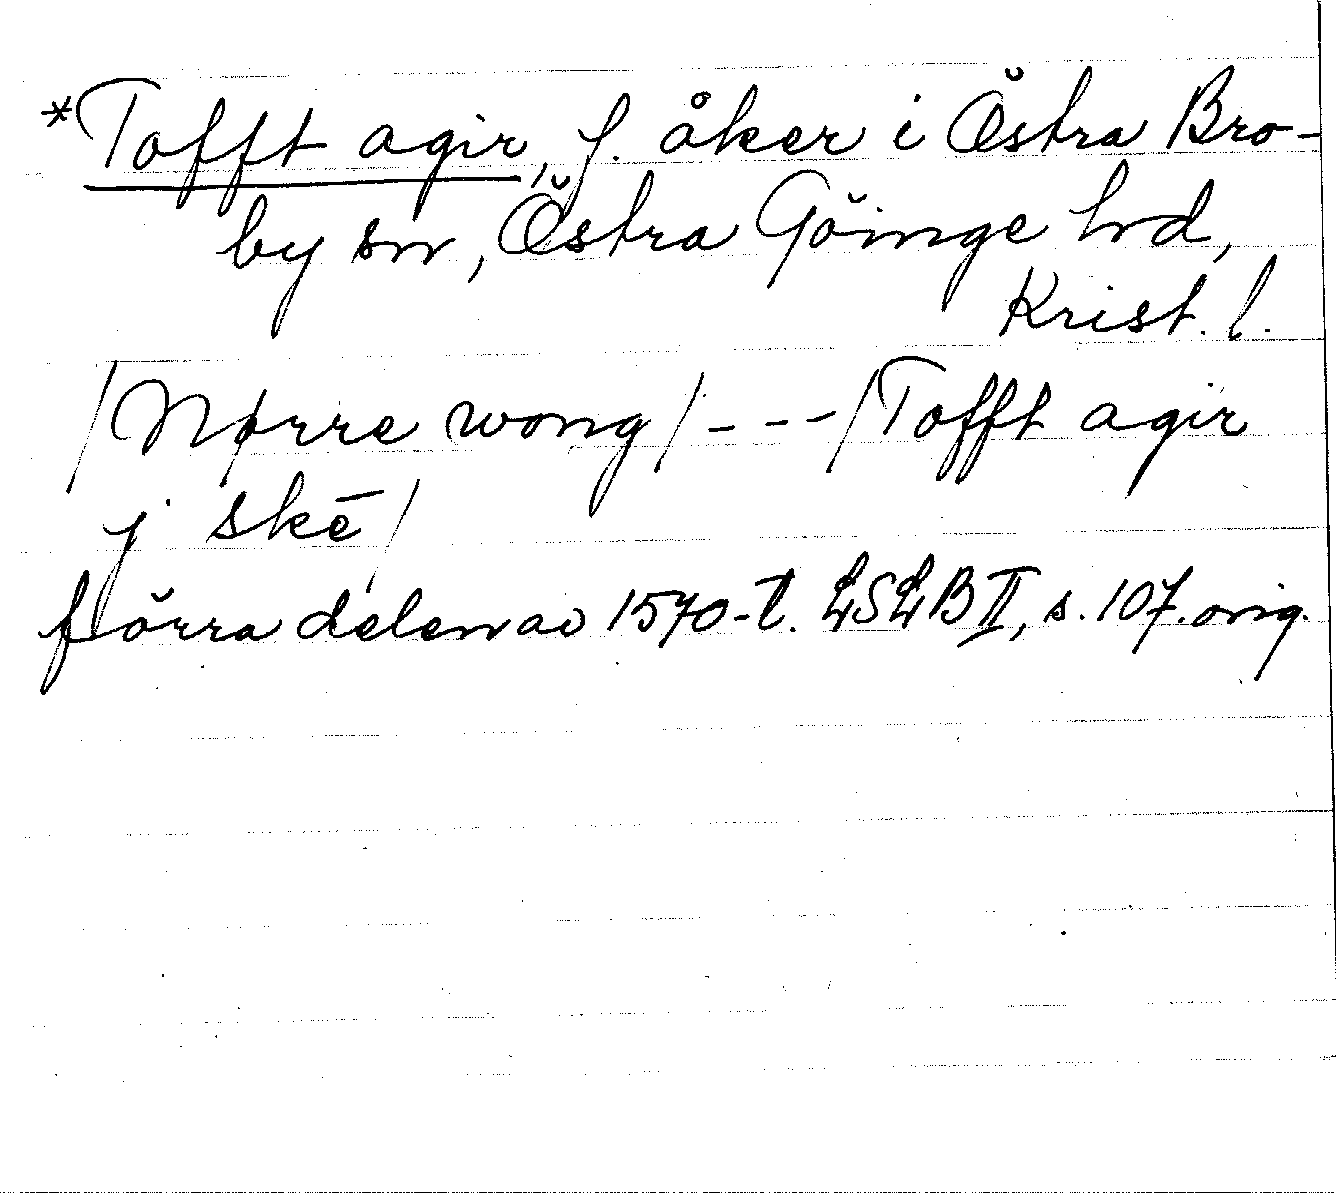 *Tofft agir, f. åker i Östra Bro-
by sn, Östra Göinge hd,
Krist. l.
/Nørre wong/---/Tofft agir
j skē/
förra delen av 1570-t. LSLB II, s. 107. orig.